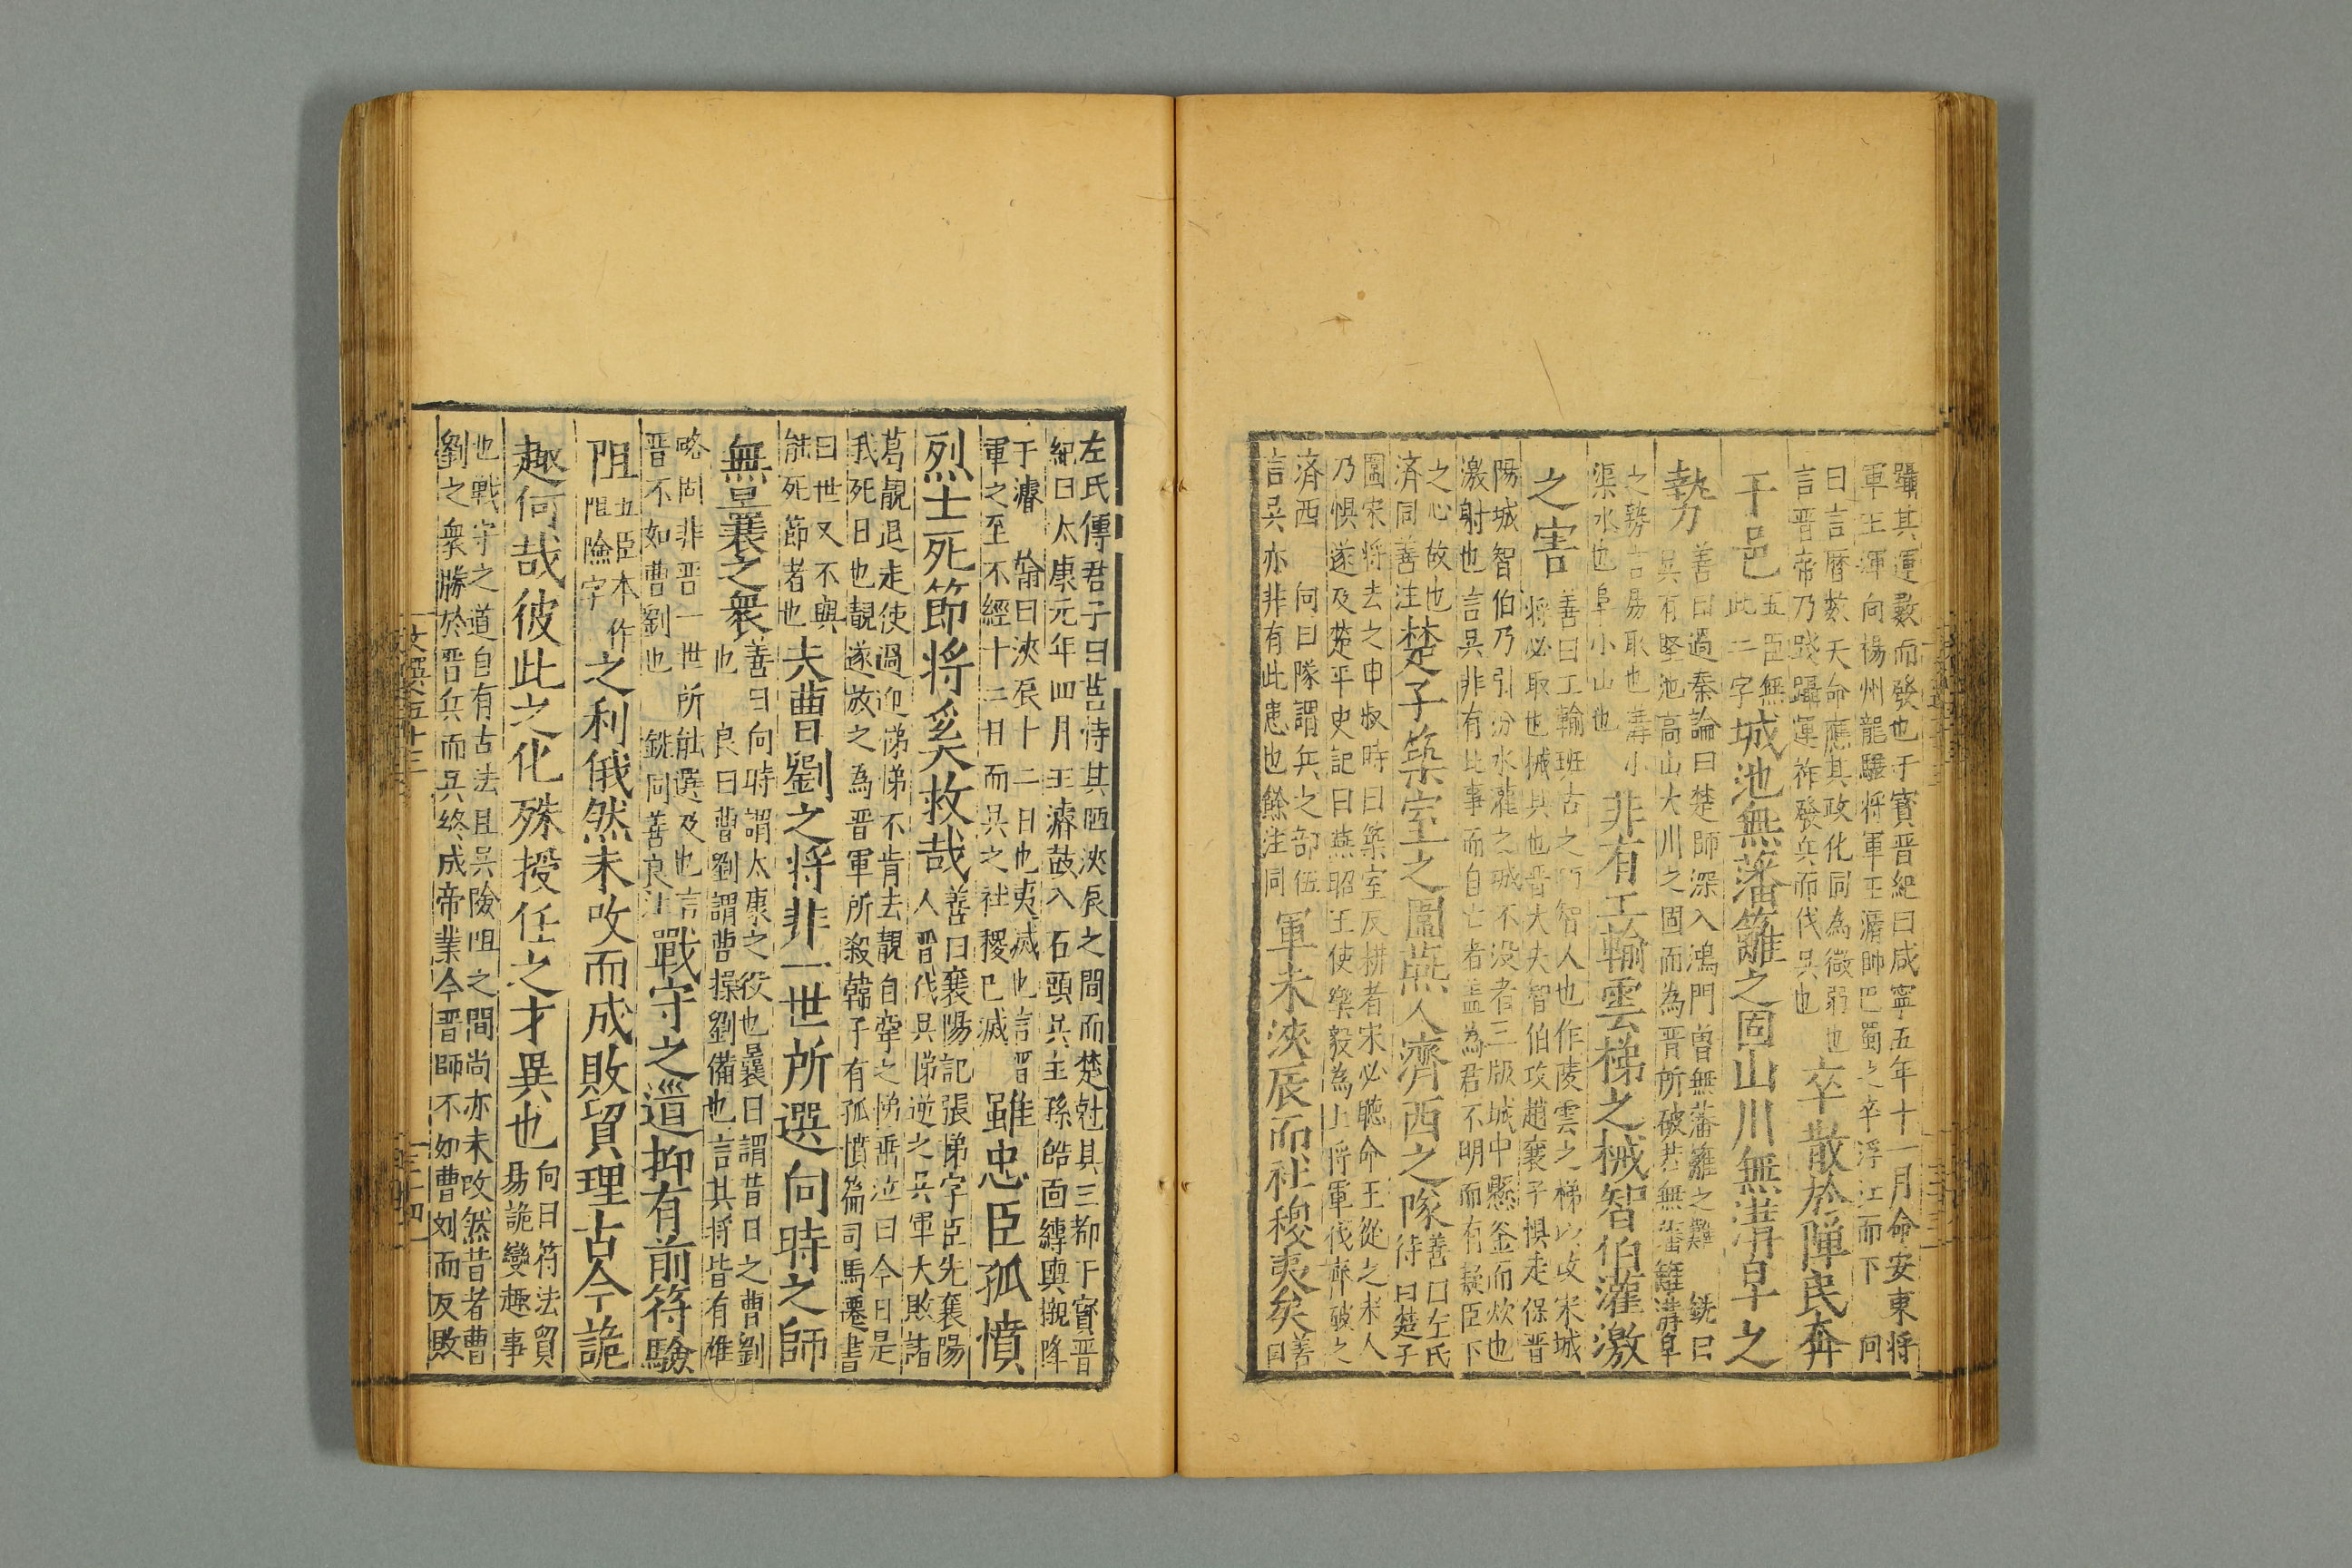 躡其運數而發也于寳晉紀曰咸寧五年十一月命安東將
軍王渾向楊州龍驤將軍王濬帥巴蜀之卒浮江而下 向
曰言曆數天命應其政化同為微弱也
言晉帝乃踐躡運祚發兵而伐吳也
卒散於陣民奔
于邑
五臣無
此二字
城池無藩籬之固山川無溝阜之
勢
善曰過秦論曰楚師深入鴻門曾無藩籬之難 銑曰
吳有堅池高山大川之固而為晉所破若無藩籬溝阜
之勢言易取也溝小
渠水也阜小山也
非有工輸雲梯之械智伯灌激
之害
善曰工輸班古之巧智人也作陵雲之梯以攻宋城
將必取也械具也晉大夫智伯攻趙襄子懼走保晉
陽城智伯乃引汾水灌之城不没者三版城中懸釜而炊也
激射也言吳非有此事而自亡者盖為君不明而有疑臣下
之心故也
濟同善注
楚子築室之圍燕人濟西之隊
善曰左氏
待曰楚子
圍宋將去之申叔時曰築室反耕者宋必聽命王從之宋人
乃懼遂及楚平史記曰燕昭王使樂毅為上將軍伐齊破之
濟西 向曰隊謂兵之部伍
言吳亦非有此患也餘注同
軍未浹辰而社稷夷矣
善
曰
左氏傳君子曰莒恃其陋浹辰之間而楚尅其三都干寳晉
紀曰太康元年四月王濬鼓入石頭吳主孫皓面縛輿櫬降
于濬 翰曰浹辰十二日也夷滅也言晉
軍之至不經十二日而吳之社稷已滅
雖忠臣孤憤
烈士死節將奚救哉
善曰襄陽記張悌字臣先襄陽
人晉伐吳悌逆之吳軍大敗諸
葛靚退走使過迎悌悌不肯去靚自牽之悌垂泣曰今日是
我死日也靚遂放之為晉軍所殺韓子有孤憤篇司馬遷書
曰世又不與
能死節者也
夫曹劉之將非一世所選向時之師
無曩之衆
善曰向時謂太康之役也曩日謂昔日之曹劉
也 良曰曹劉謂曹操劉備也言其將皆有雄
略固非晉一世所能選及也言
晉不如曹劉也 銑同善良注
戰守之道抑有前符驗
阻
五臣本作
阻險字
之利俄然未改而成敗貿理古今詭
趣何哉彼此之化殊授任之才異也
向曰符法貿
易詭變趣事
也戰守之道自有古法且吳險阻之間尚亦未改然昔者曹
劉之衆勝於晉兵而吳終成帝業今晉師不如曹刘而反敗
文選五十三
三十四